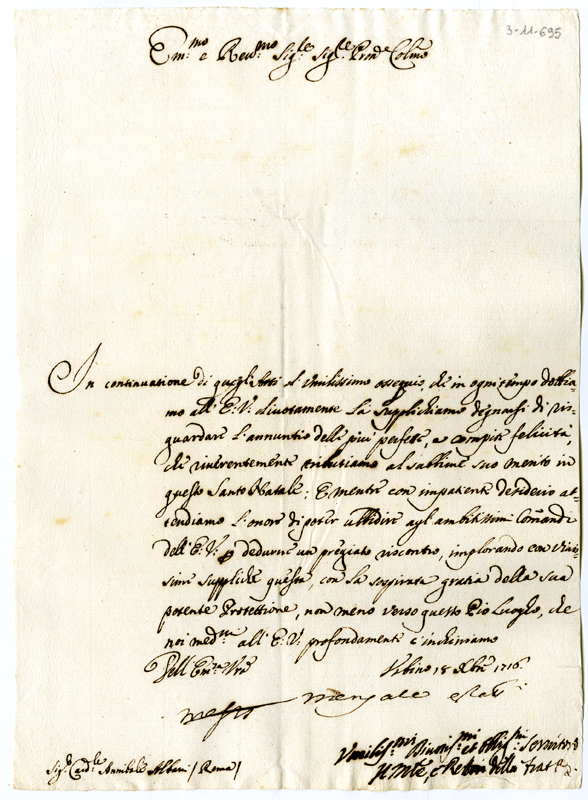 3-11-695
Em:mo e Reu:mo Sig:re Sig:re Pron:e Colmo
In continuatione di quegl'Atti d'Umilissimo ossequio, che in ogni tempo dobbia-
mo all'E:V: diuotamente La Supplichiamo degnarsi di ris-
guardare l'annuntio delle più perfette, e compite felicità,
che riuerentemente tributiamo al sublime suo merito in
questo Santo Natale; E mentre con impatiente desiderio at-
tendiamo l'onore di poter ubbidire agl'ambitissimi Comandi
dell'E:V: p dedurne un pregiato riscontro, implorando con uiuis-
sime suppliche questa, con la sospirata gratia della sua
potente Protettione, non meno verso questo Pio Luogho, che
noi med:mi all'E:V: profondamente c'inchiniamo
Dell'Em:za Vra Urbino 18 Xbre 1716
Umiliss:mi Diuotis:mi et Obligatis:mi Seruitori
Sig:r Card:le Annibale Albani / Roma /